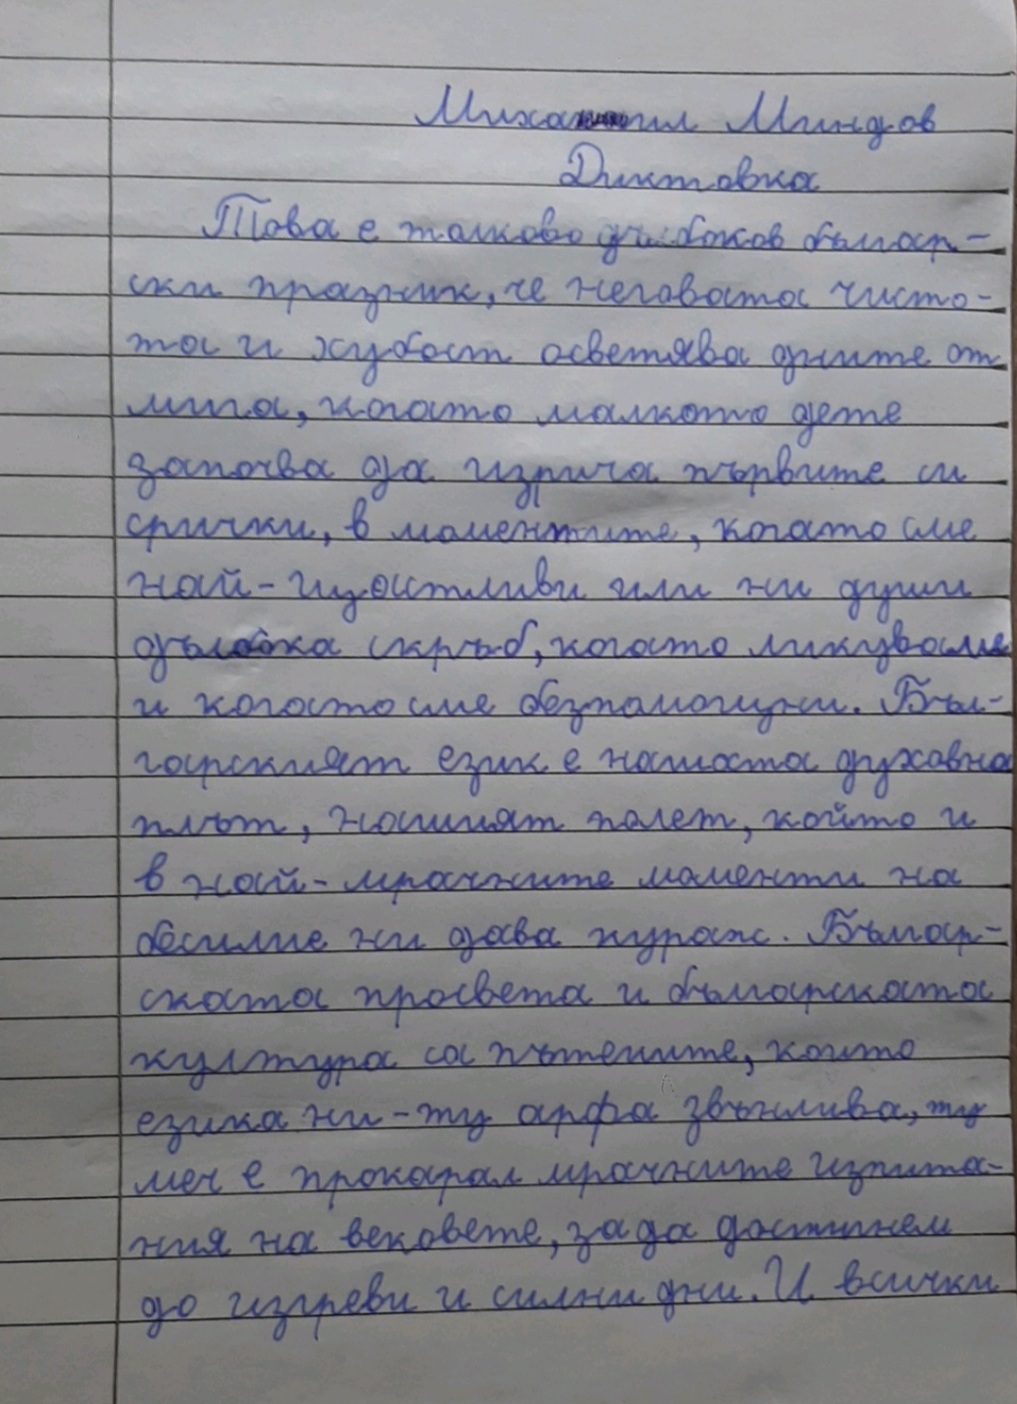 Михаил Миндов
Диктовка
Това е толково дълбоков българ-
ски празник, че неговата чисто-
та и хубост осветява дните от
мига, когато малкото дете
започва да изрича първите си
срички, в моментите, когато сме
най-щастливи или ни души
дълбока скръб, когато ликуваме
и когато сме безпомощни. Бъл-
гарският език е нашата духовна
плът, нашият полет, който и
в най-мрачните моменти на
безсилие ни дава кураж. Българ-
ската просвета и българската
култура са пътеките, които
езика ни-ту арфа звънлива, ту
меч е прокарал мрачните изпита-
ния на вековете, за да достинем
до изгреви и силни дни. И всички